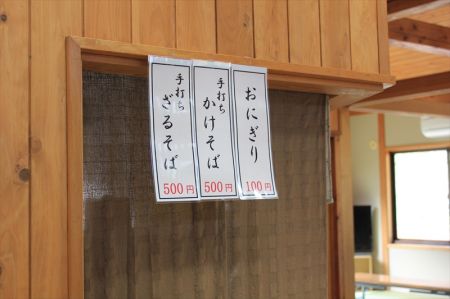 おにぎり
100円
手打ち
かけそば
500円
手打ち
ざるそば
500円